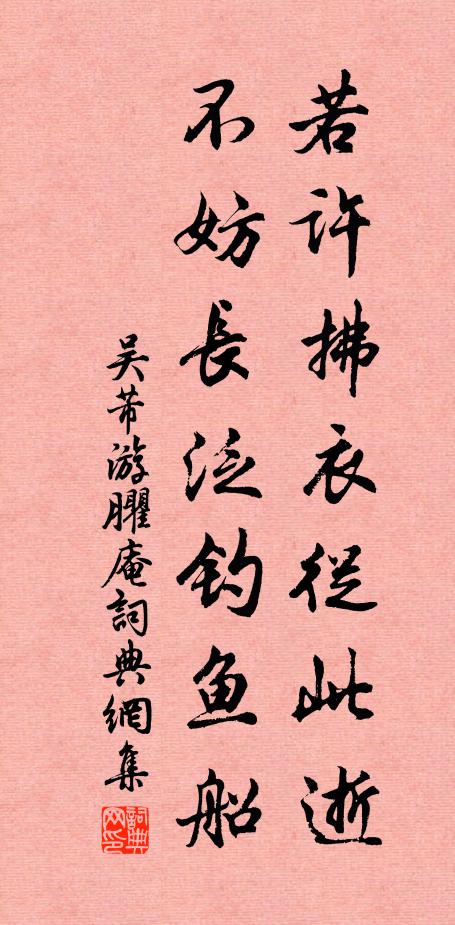 若许拂衣從此逝
不妨長泛钓鱼船
吴芾游臞庵詞典網集
詞典网印